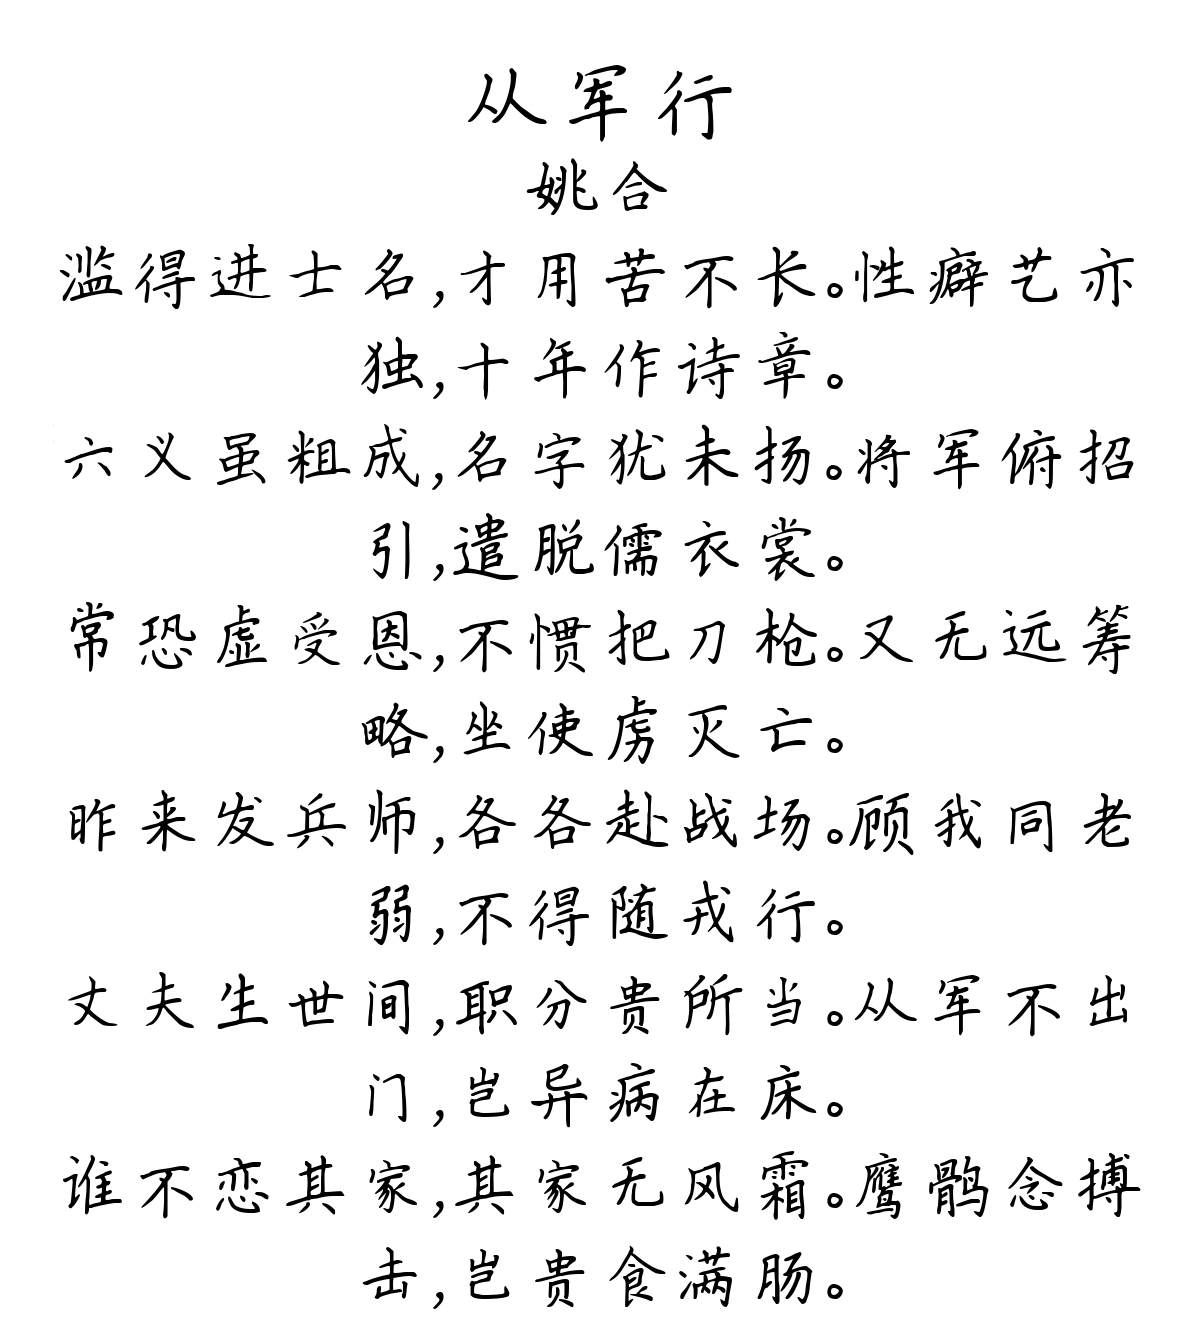 从军行
姚合
滥得进士名,才用苦不长。性癖艺亦
独,十年作诗章。
六义虽粗成,名字犹未扬。将军俯招
引,遣脱儒衣裳。
常恐虚受恩,不惯把刀枪。又无远筹
略,坐使虏灭亡。
昨来发兵师,各各赴战场。顾我同老
弱,不得随戎行。
丈夫生世间,职分贵所当。从军不出
门,岂异病在床。
谁不恋其家,其家无风霜。鹰鹘念搏
击,岂贵食满肠。